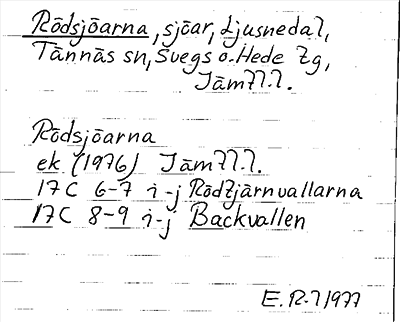 Rödsjöarna, sjöar, Ljusnedal,
Tännäs sn, Svegs o. Hede tg,
Jämtl.
Rödsjöarna
ek (1976) Jämtl.
17C 6-7 i-j Rödtjärnvallarna
17C 8-9 i-j Backvallen
E. R-7/1977